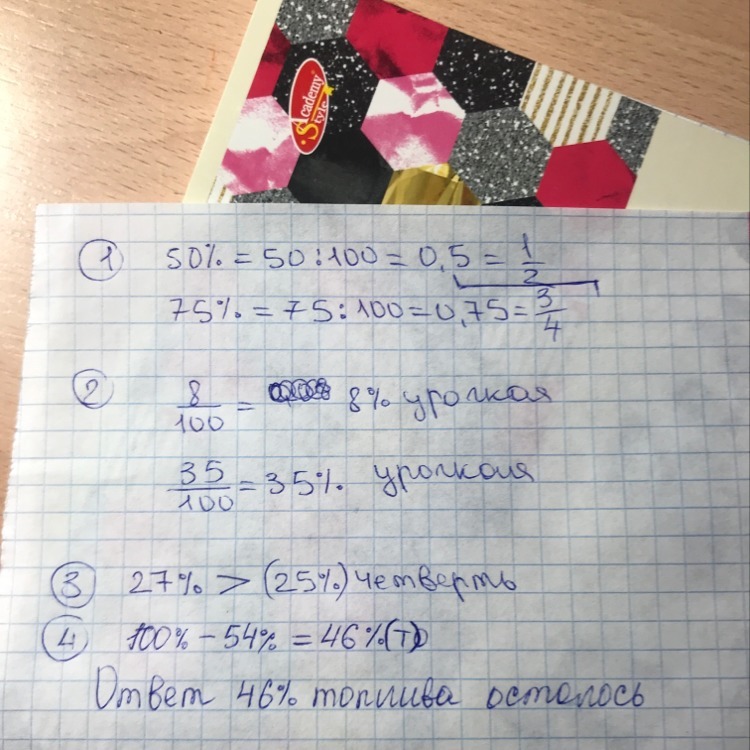 Academy
Style
① 50% = 50:100 = 0,5 = 1/2
75% = 75:100 = 0,75 = 3/4
② 8/100 = 8% урожая
35/100 = 35% урожая
③ 27% > (25%) четверть
④ 100% - 54% = 46% (т)
Ответ 46% топлива осталось